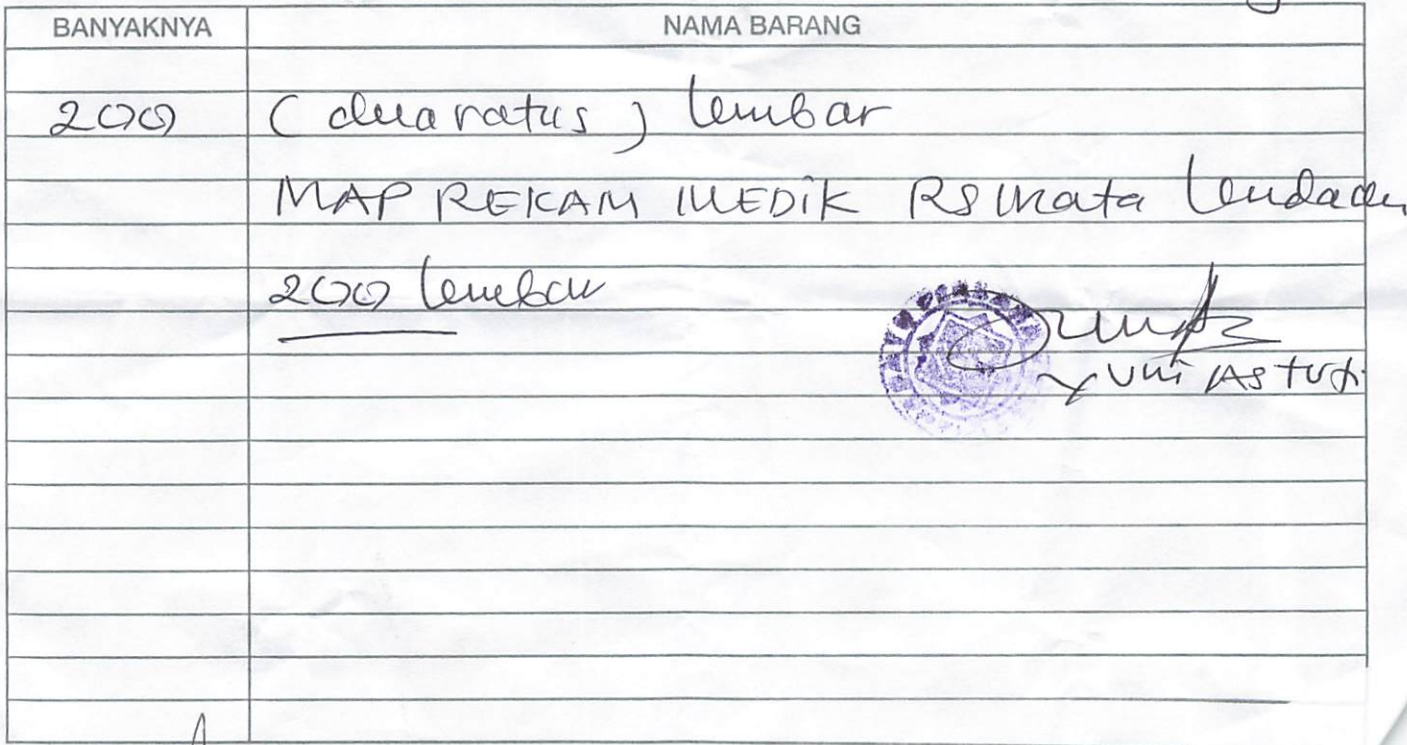 BANYAKNYA NAMA BARANG
200 (dua ratus) lembar
MAP REKAM MEDIK RS Mata
200 lembar
Yuni Astuti